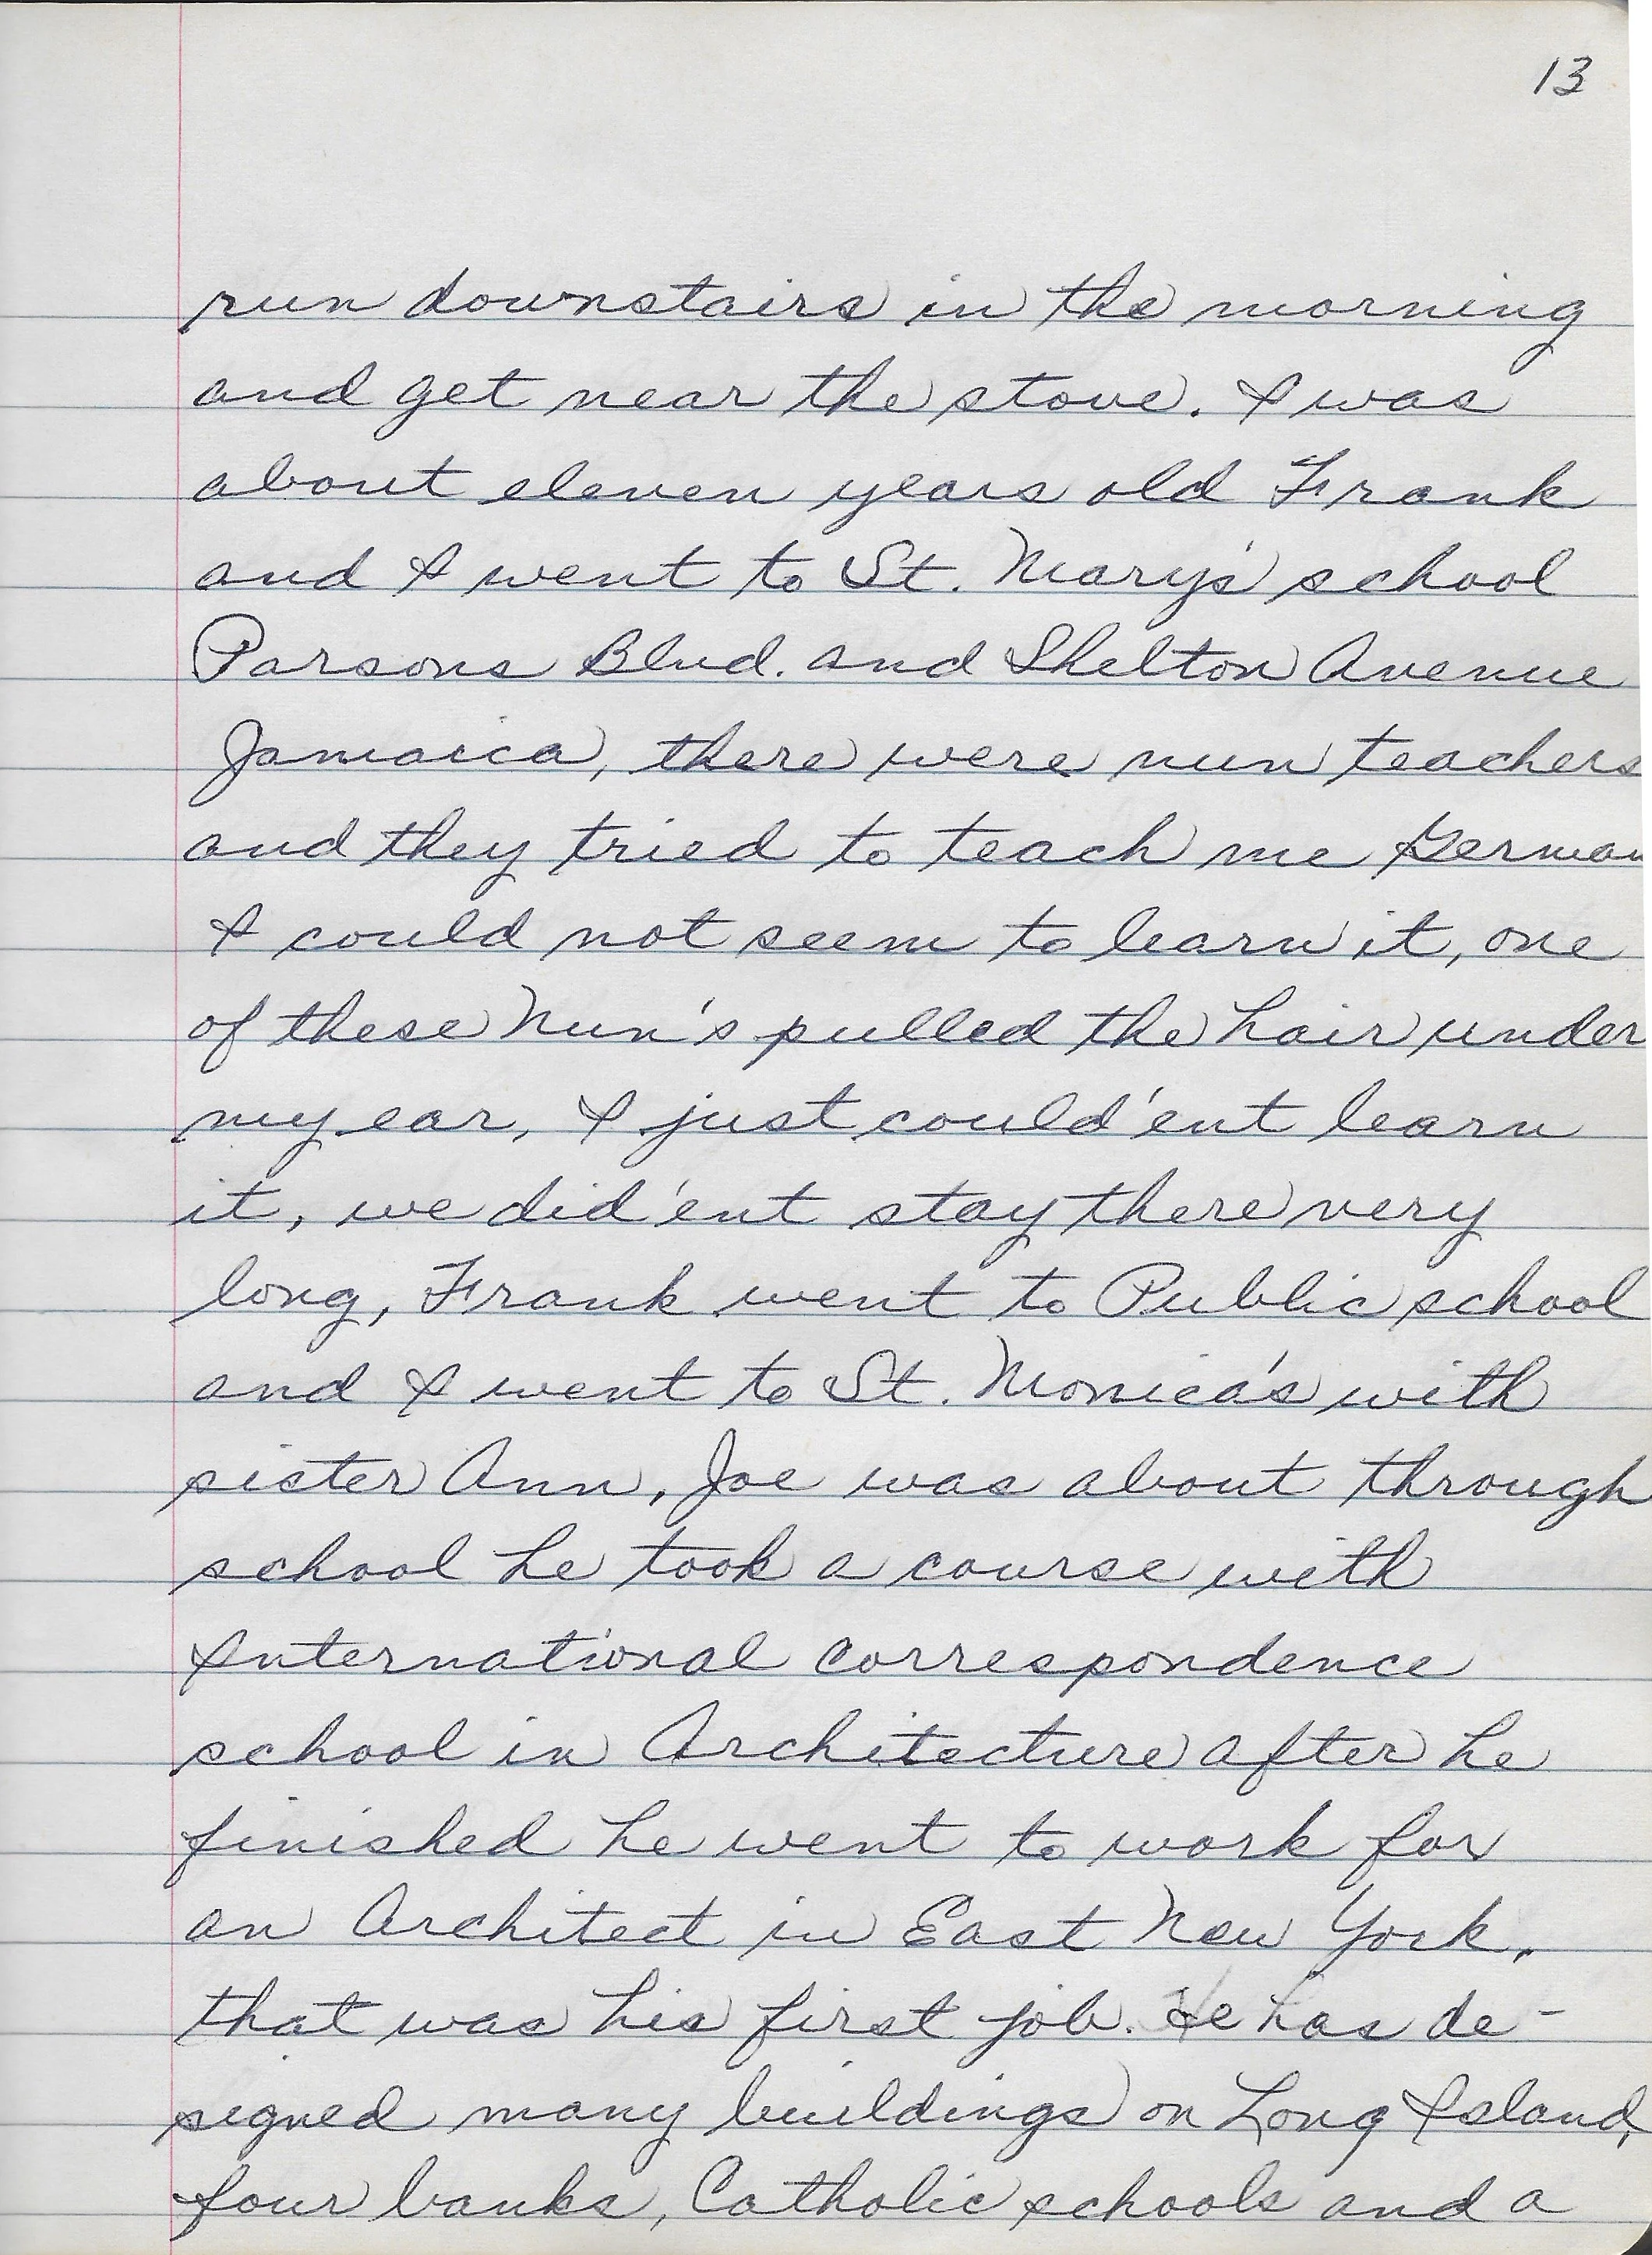 13
run downstairs in the morning
and get near the stove. I was
about eleven years old Frank
and I went to St. Mary's school
Parsons Blvd. and Shelton Avenue
Jamaica, there were nun teachers
and they tried to teach me German
I could not seem to learn it, one
of these Nun's pulled the hair under
my ear, I just could'ent learn
it, we did'ent stay there very
long, Frank went to Public school
and I went to St. Monica's with
sister Ann, Joe was about through
school he took a course with
International correspondence
school in Architecture after he
finished he went to work for
an Architect in East New York,
that was his first job. He has de-
signed many buildings on Long Island,
four banks, Catholic schools and a